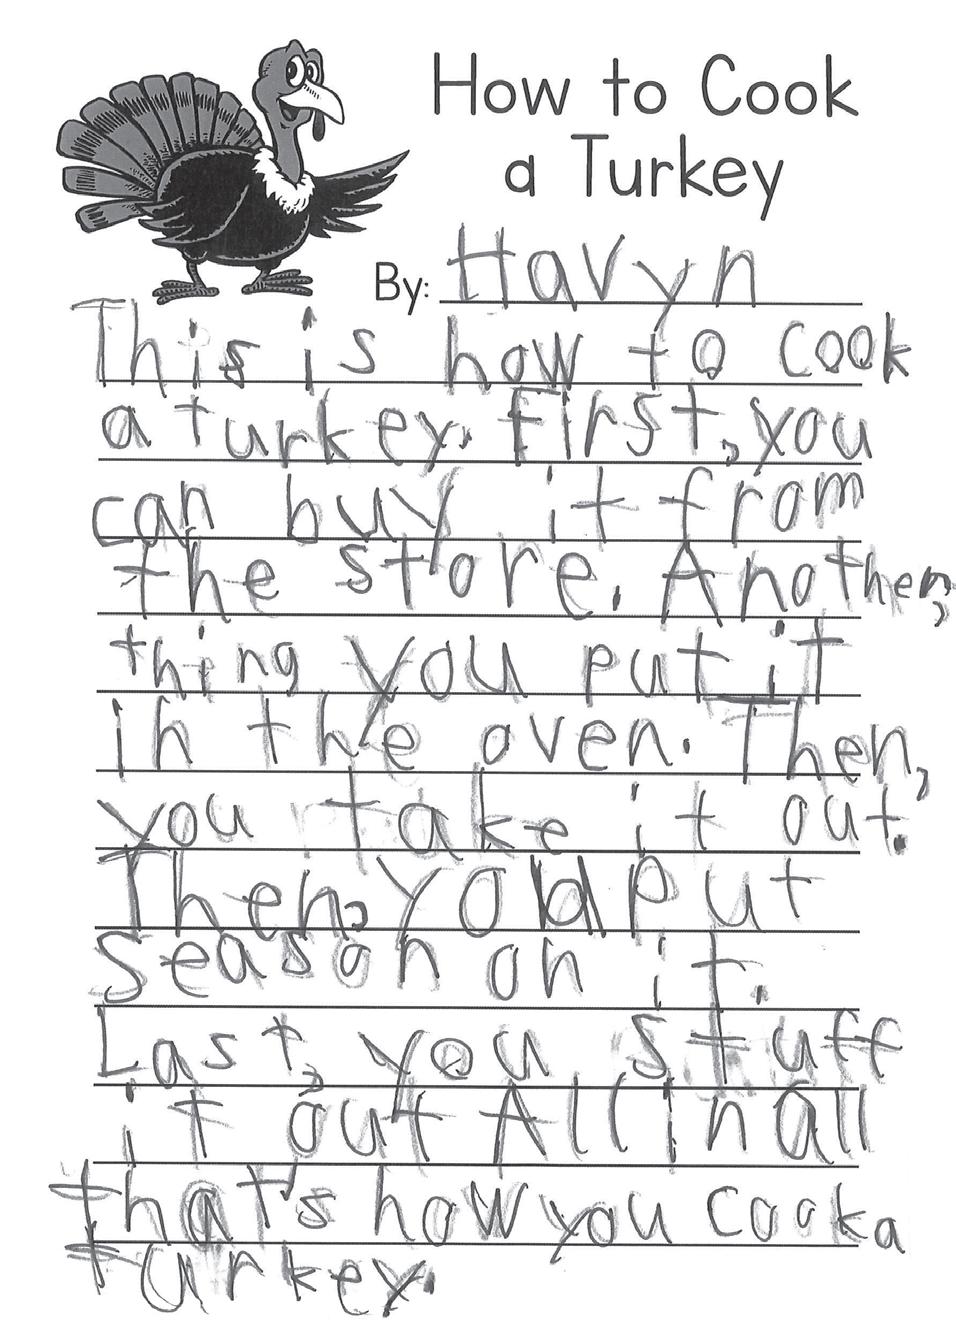 How to Cook
a Turkey
By: Havyn
This is how to cook
a turkey. First, you
can buy it from
the store. Anothen,
thing you put it
in the oven. Then,
you take it out.
Then, you put
season on it.
Last, you stuff
it out All in all
that's how you cook a
turkey.